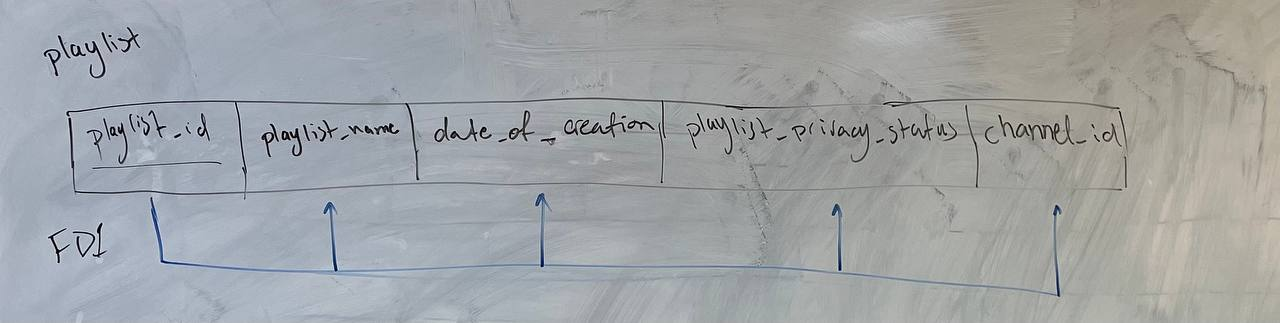 playlist
playlist_id playlist_name date_of_creation playlist_privacy_status channel_id
FD1